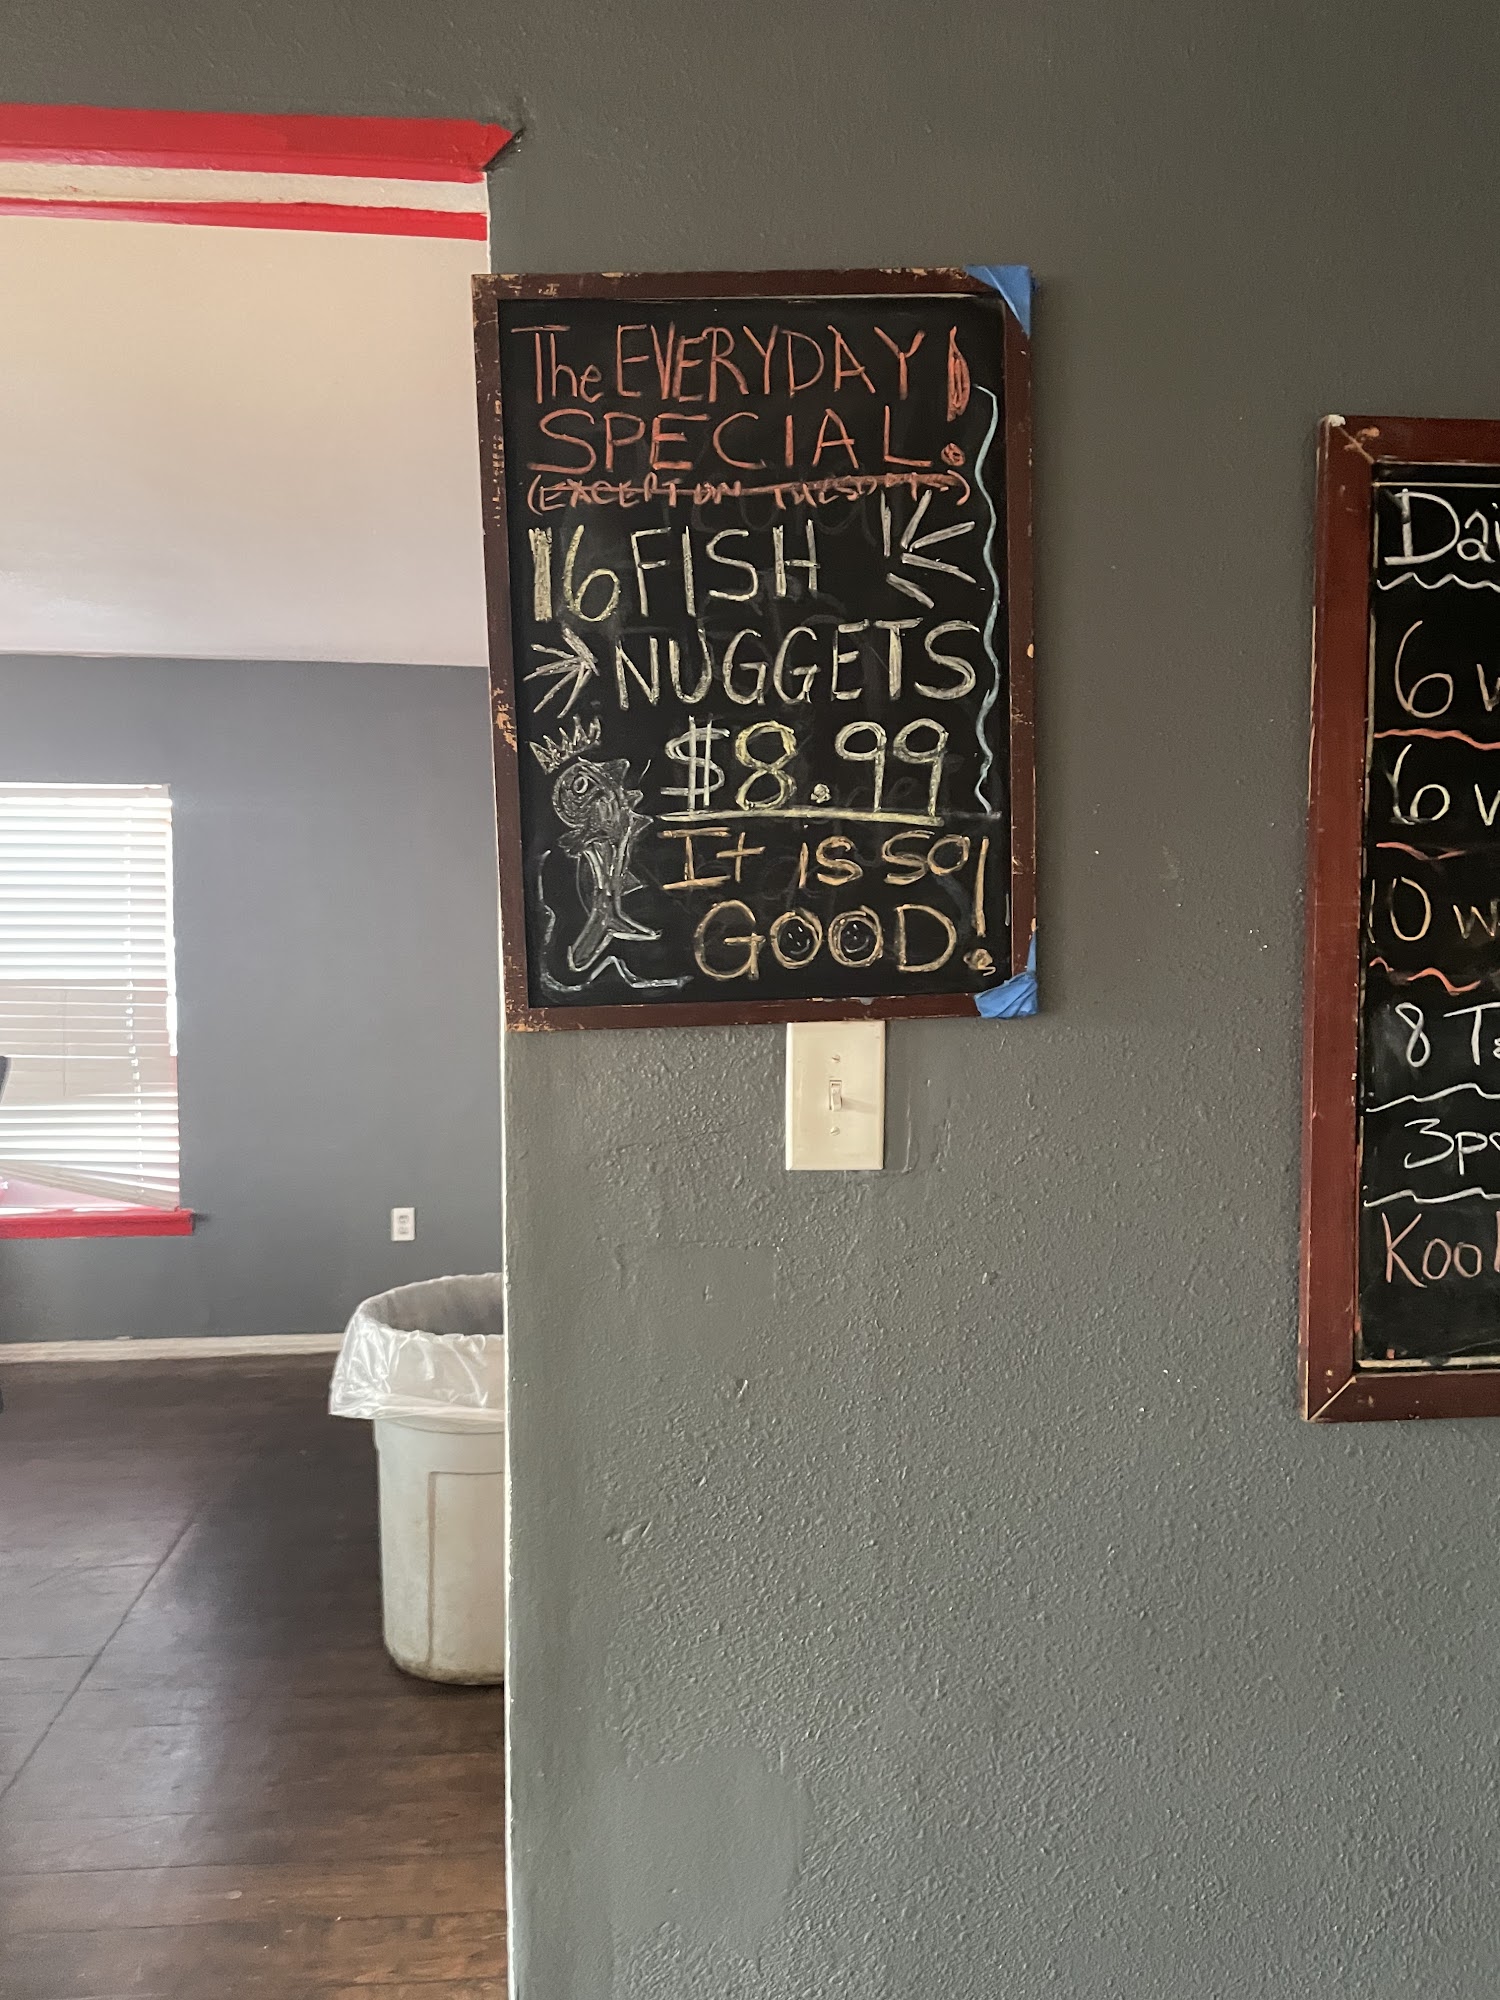 The EVERYDAY
SPECIAL!
(EXCEPT ON TUESDAYS)
16 FISH
NUGGETS
$8.99
It is so
GOOD!
Dai
6 w
6 w
10 w
8 T
3p
Kool